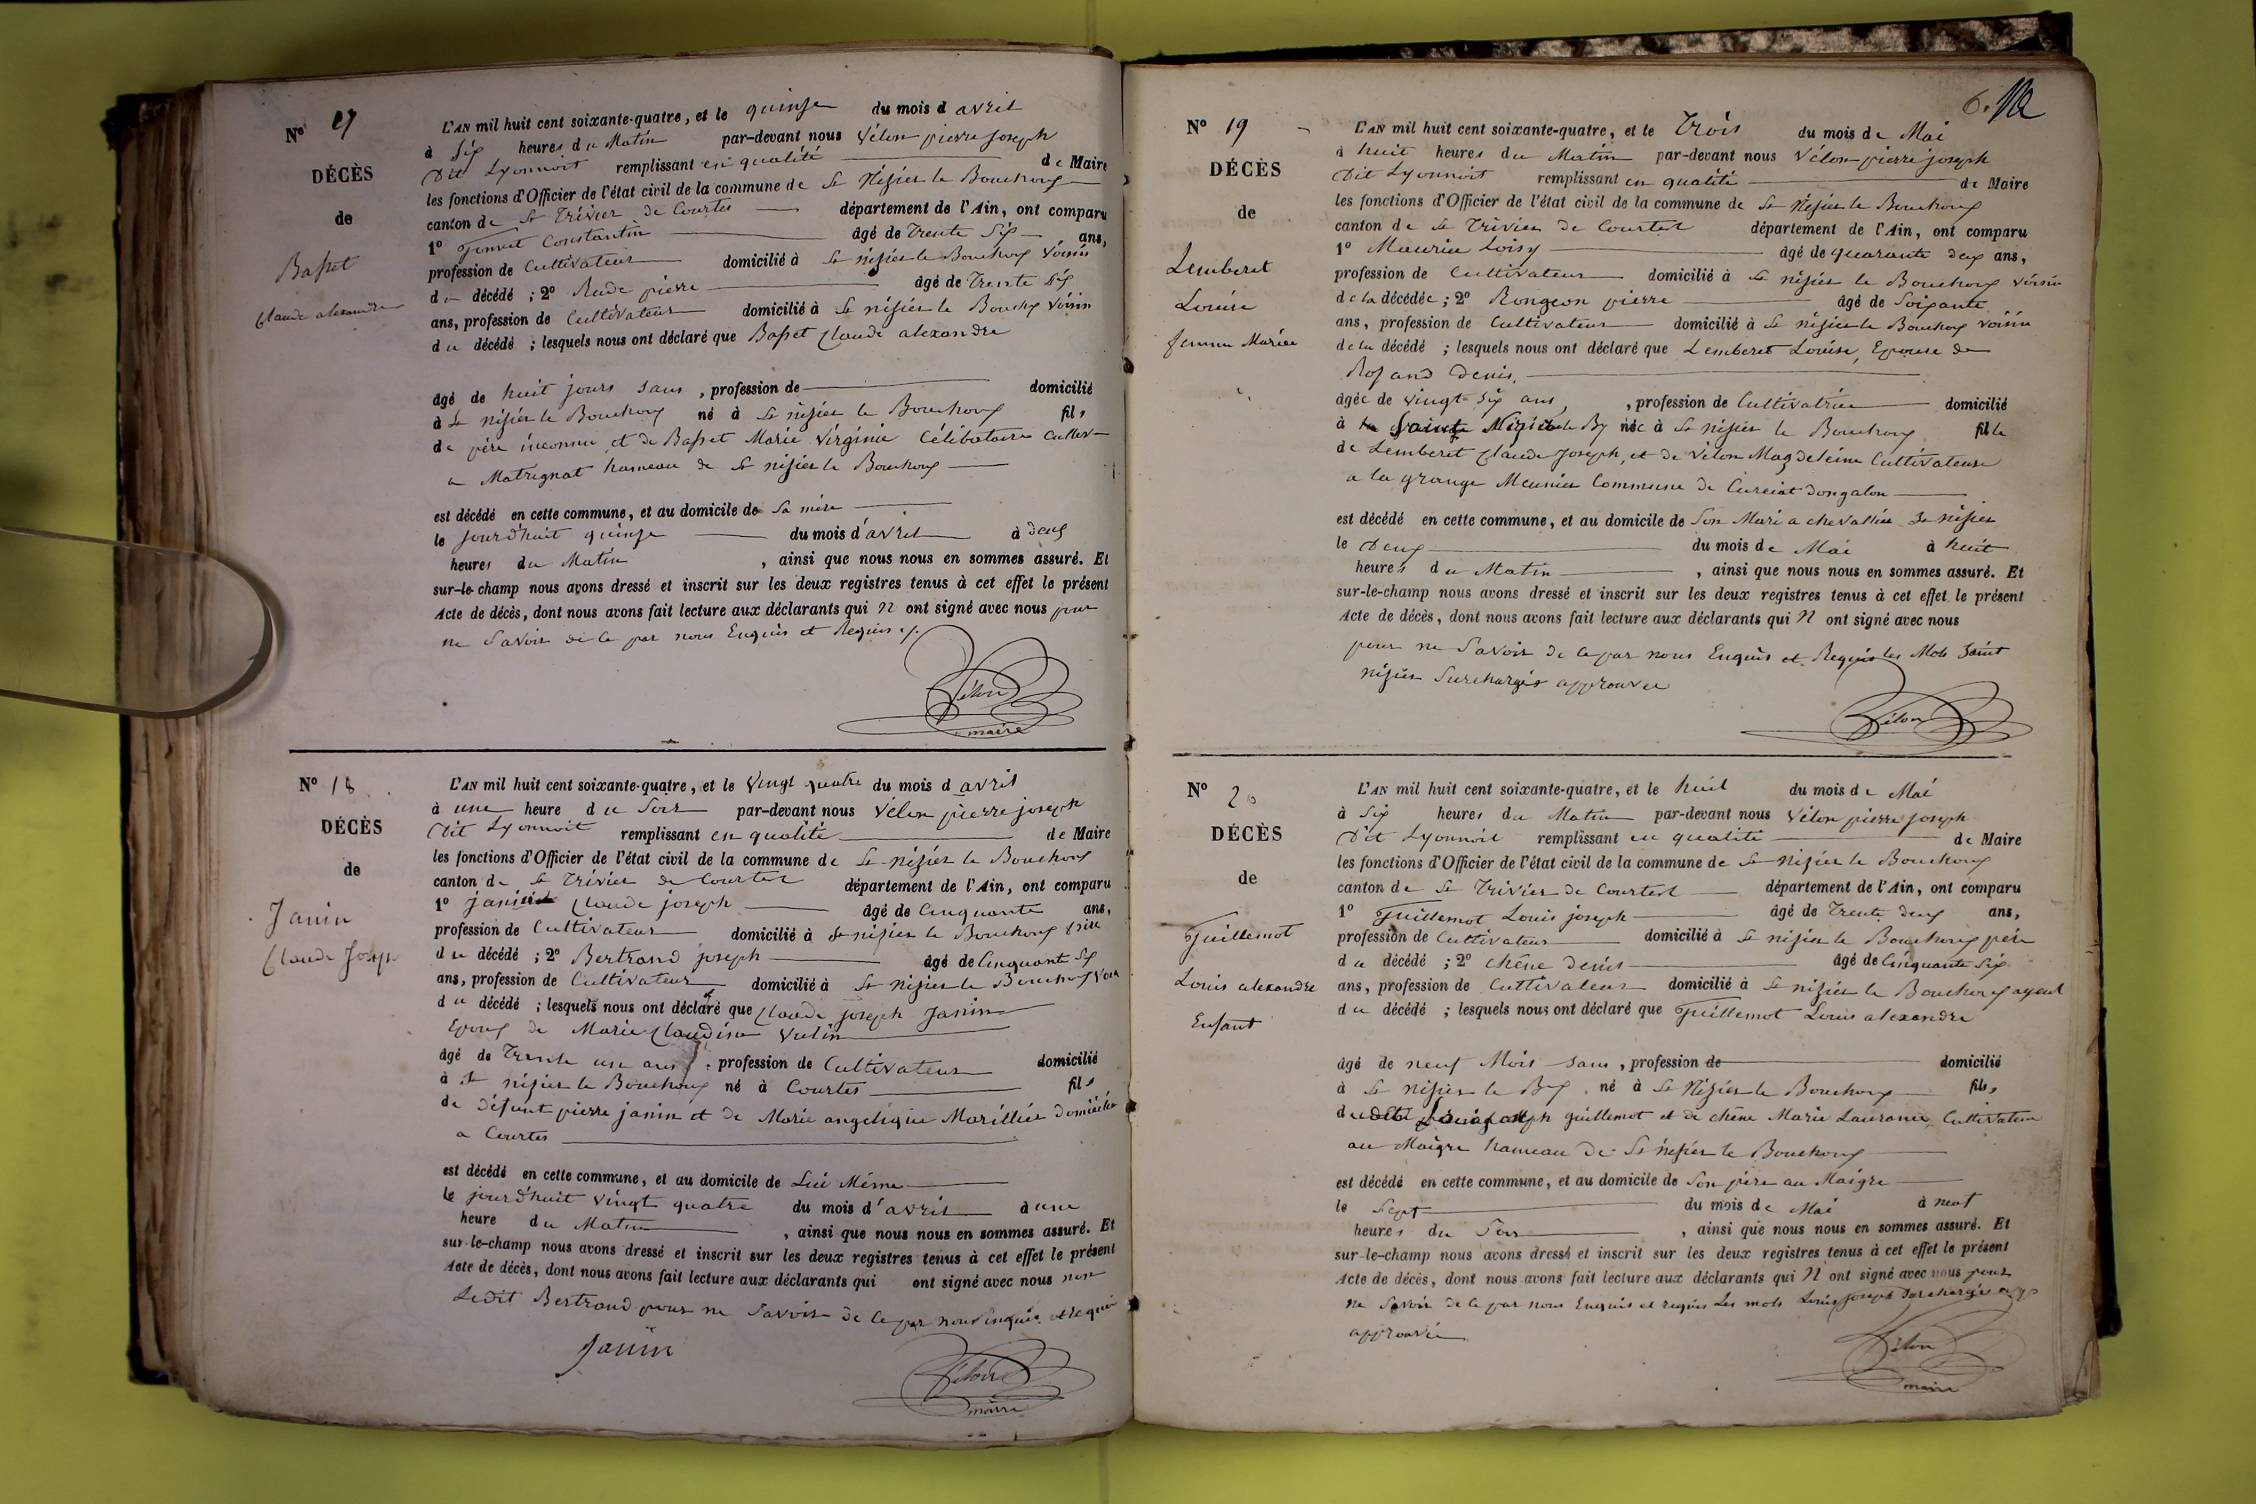 Nº 17
DÉCÈS
de
Basset
Claude alexandre
L'AN mil huit cent soixante-quatre, et le quinze du mois d avril
à Six heures du Matin par-devant nous Vélon pierre Joseph
Dit Lyonnoit remplissant en qualité de Maire
les fonctions d'Officier de l'état civil de la commune de St Nizier le Bouchoux
canton de St Trivier de Courtes département de l'Ain, ont comparu
1º Constantin âgé de Trente Six ans,
profession de Cultivateur domicilié à St nizier le Bouchoux Voisin
du décédé ; 2º Rude pierre âgé de Trente Six
ans, profession de Cultivateur domicilié à St nizier le Bouchx Voisin
du décédé ; lesquels nous ont déclaré que Basset Claude alexandre
âgé de huit jours sans , profession de domicilié
à St nizier le Bouchoux né à St nizier le Bouchoux fils
de père inconnu et de Basset Marie Virginie Célibataire Cultiv
a Matrignat hameau de St nizier le Bouchoux
est décédé en cette commune, et au domicile de Sa mère
le jourd'huit quinze du mois d'avril à deux
heures du Matin , ainsi que nous nous en sommes assuré. Et
sur-le-champ nous avons dressé et inscrit sur les deux registres tenus à cet effet le présent
Acte de décès, dont nous avons fait lecture aux déclarants qui n ont signé avec nous pour
ne Savoir de ce par nous Enquis et Requis ./.
Vélon
maire
Nº 18
DÉCÈS
de
Janin
Claude Joseph
L'AN mil huit cent soixante-quatre, et le Vingt quatre du mois d avril
à une heure du Soir par-devant nous Vélon pierre joseph
Dit Lyonnoit remplissant en qualité de Maire
les fonctions d'Officier de l'état civil de la commune de St nizier le Bouchoux
canton de St Trivier de Courtes département de l'Ain, ont comparu
1º janin Claude joseph âgé de Cinquante ans,
profession de Cultivateur domicilié à St nizier le Bouchoux père
du décédé ; 2º Bertrand joseph âgé de Cinquant Six
ans, profession de Cultivateur domicilié à St nizier le Bouchox Voisin
du décédé ; lesquels nous ont déclaré que Claude joseph Janin
Epoux de Marie Claudine Vulin
âgé de Trente un ans , profession de Cultivateur domicilié
à St nizier le Bouchoux né à Courtes fils
de défunt pierre janin et de Marie angelique Marillier Domiciliée
a Courtes
est décédé en cette commune, et au domicile de Lui Même
le jourd'huit vingt quatre du mois d'avril à une
heure du Matin , ainsi que nous nous en sommes assuré. Et
sur-le-champ nous avons dressé et inscrit sur les deux registres tenus à cet effet le présent
Acte de décès, dont nous avons fait lecture aux déclarants qui ont signé avec nous non
Ledit Bertrand pour ne Savoir de ce par nous Enquis et Requis
Janin
Vélon
maire
6.
Nº 19
DÉCÈS
de
Lemberet
Louise
femme Mariée
L'AN mil huit cent soixante-quatre, et le Trois du mois de Mai
à huit heures du Matin par-devant nous Vélon pierre joseph
Dit Lyonnoit remplissant en qualité de Maire
les fonctions d'Officier de l'état civil de la commune de St Nizier le Bouchoux
canton de St Trivier de Courtes département de l'Ain, ont comparu
1º Maurice Loisy âgé de quarante deux ans,
profession de Cultivateur domicilié à St nizier le Bouchoux Voisin
de la décédée ; 2º Rongeon pierre âgé de Soixante
ans, profession de Cultivateur domicilié à St nizier le Bouchoux voisin
de la décédé ; lesquels nous ont déclaré que Lemberet Louise, Epouse de
Rozand Denis.
âgée de vingt Six ans , profession de Cultivatrice domicilié
à Saint Nizier le Bx née à St nizier le Bouchoux fille
de Lemberet Claude Joseph, et de Vélon Magdeleine Cultivateurs
a la grange Meunier Commune de Curciat dongalon
est décédé en cette commune, et au domicile de Son Mari a chevallier St Nizier
le Deux du mois de Mai à huit
heures du Matin , ainsi que nous nous en sommes assuré. Et
sur-le-champ nous avons dressé et inscrit sur les deux registres tenus à cet effet le présent
Acte de décès, dont nous avons fait lecture aux déclarants qui n ont signé avec nous
pour ne Savoir de ce par nous Enquis et Requis les Mots Saint
nizier Surchargés approuvée
Vélon
Nº 20
DÉCÈS
de
Guillemot
Louis alexandre
Enfant
L'AN mil huit cent soixante-quatre, et le huit du mois de Mai
à Six heures du Matin par-devant nous Vélon pierre joseph
Dit Lyonnoit remplissant en qualité de Maire
les fonctions d'Officier de l'état civil de la commune de St nizier le Bouchoux
canton de St Trivier de Courtes département de l'Ain, ont comparu
1º Guillemot Louis joseph âgé de Trente deux ans,
profession de Cultivateur domicilié à St nizier le Bouchoux père
du décédé ; 2º chêne Denis âgé de Cinquante Six
ans, profession de Cultivateur domicilié à St nizier le Bouchoux ayeul
du décédé ; lesquels nous ont déclaré que Guillemot Louis alexandre
âgé de neuf Mois sans , profession de domicilié
à St nizier le Bx né à St Nizier le Bouchoux fils
dudit Louis joseph guillemot et de chêne Marie Laurance Cultivateur
au Maigre hameau de St nizier le Bouchoux
est décédé en cette commune, et au domicile de Son père au Maigre
le Sept du mois de Mai à neuf
heures du Soir , ainsi que nous nous en sommes assuré. Et
sur-le-champ nous avons dressé et inscrit sur les deux registres tenus à cet effet le présent
Acte de décès, dont nous avons fait lecture aux déclarants qui n ont signé avec nous pour
ne Savoir de ce par nous Enquis et requis Les mots Louis Joseph Surchargés
approuvée
Vélon
maire